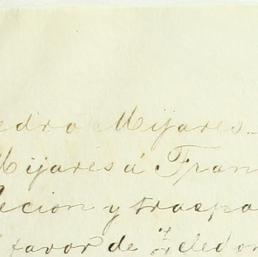 edro Mijares
Mijares á Fran
ecion y traspa
favor de